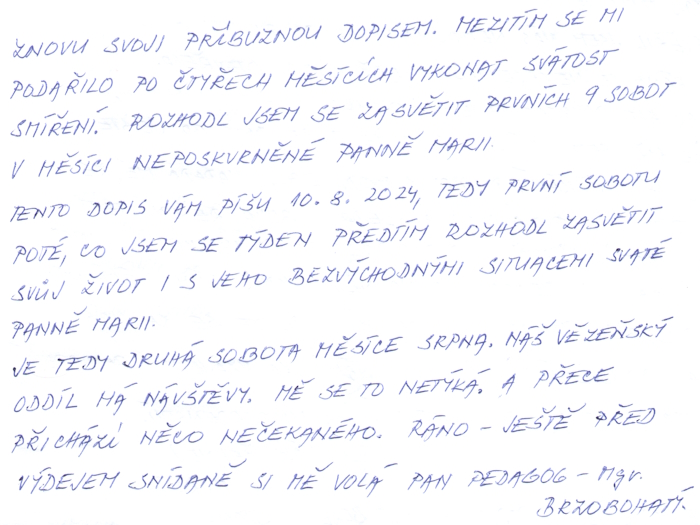 ZNOVU SVOJI PŘÍBUZNOU DOPISEM. MEZITÍM SE MI
PODAŘILO PO ČTYŘECH MĚSÍCÍCH VYKONAT SVÁTOST
SMÍŘENÍ. ROZHODL JSEM SE ZASVĚTIT PRVNÍCH 9 SOBOT
V MĚSÍCI NEPOSKVRNĚNÉ PANNĚ MARII.
TENTO DOPIS VÁM PÍŠU 10. 8. 2024, TEDY PRVNÍ SOBOTU
POTÉ, CO JSEM SE TÝDEN PŘEDTÍM ROZHODL ZASVĚTIT
SVŮJ ŽIVOT I S JEHO BEZVÝCHODNÝMI SITUACEMI SVATÉ
PANNĚ MARII.
JE TEDY DRUHÁ SOBOTA MĚSÍCE SRPNA. NÁŠ VĚZEŇSKÝ
ODDÍL MÁ NÁVŠTĚVY. MĚ SE TO NETÝKÁ. A PŘECE
PŘICHÁZÍ NĚCO NEČEKANÉHO. RÁNO - JEŠTĚ PŘED
VÝDEJEM SNÍDANĚ SI MĚ VOLÁ PAN PEDAGOG - Mgr.
BRZOBOHATÝ.